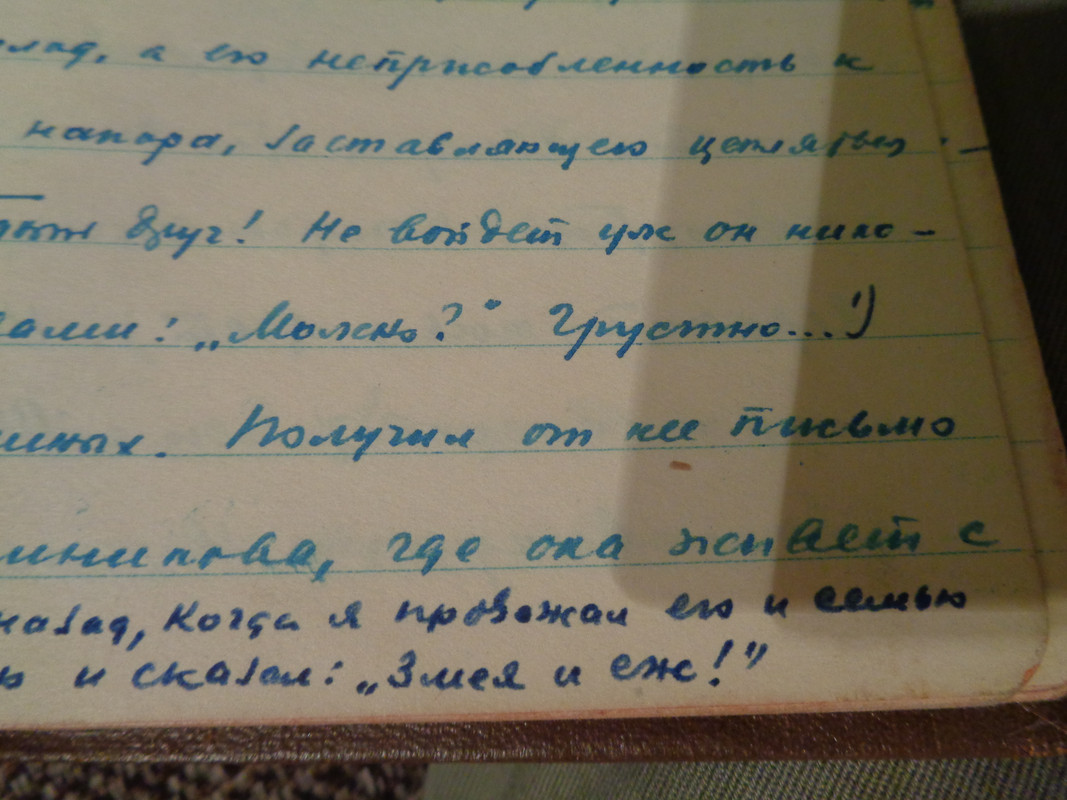 а его неприсобленность к
напора, заставляющего цепляться -
друг! Не войдет уж он нико-
: „Можно?" Грустно...!)
Получил от нее письмо
где она живет с
назад, когда я провожал его и семью
и сказал: „Змея и еж!"